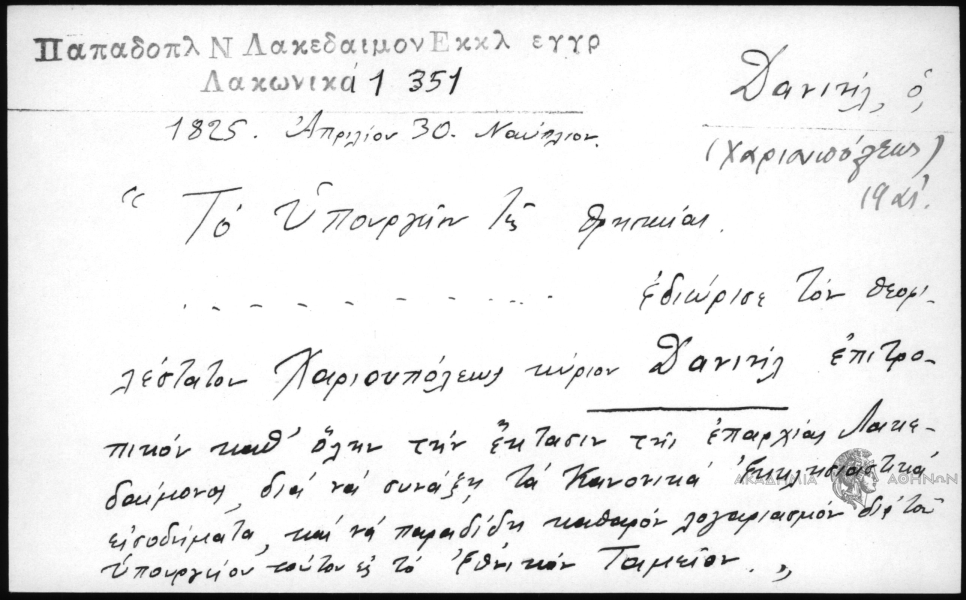 Παπαδοπλ Ν Λακεδαιμον Εκκλ εγγρ
Λακωνικά 1 351
Δανιήλ, ὁ,
(Χαριουπόλεως)
19 αἰ.
1825. Ἀπριλίου 30. Ναύπλιον.
“ Τό Ὑπουργεῖον τῆς θρησκείας.
. - - - - - - - ... ἐδιώρισε τόν θεοφι-
λέστατον Χαριουπόλεως κύριον Δανιήλ ἐπιτρο-
πικόν καθ' ὅλην τήν ἔκτασιν τῆς ἐπαρχίας Λακε-
δαίμονος, διά νά συνάξῃ τά Κανονικά Ἐκκλησιαστικά
εἰσοδήματα, καί νά παραδίδῃ καθαρόν λογαριασμόν διά τοῦ
Ὑπουργείου τούτου εἰς τό Ἐθνικόν Ταμεῖον. „
ΑΚΑΔΗΜΙΑ ΑΘΗΝΩΝ